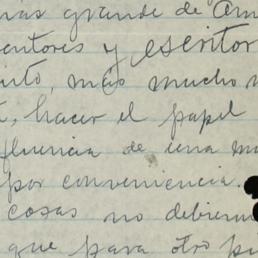 más grande de Am
entores y escritor
nto, mas mucho m
, hacer el papel
fluencia de una m
por conveniencia.
cosas no debierm
que para otro p